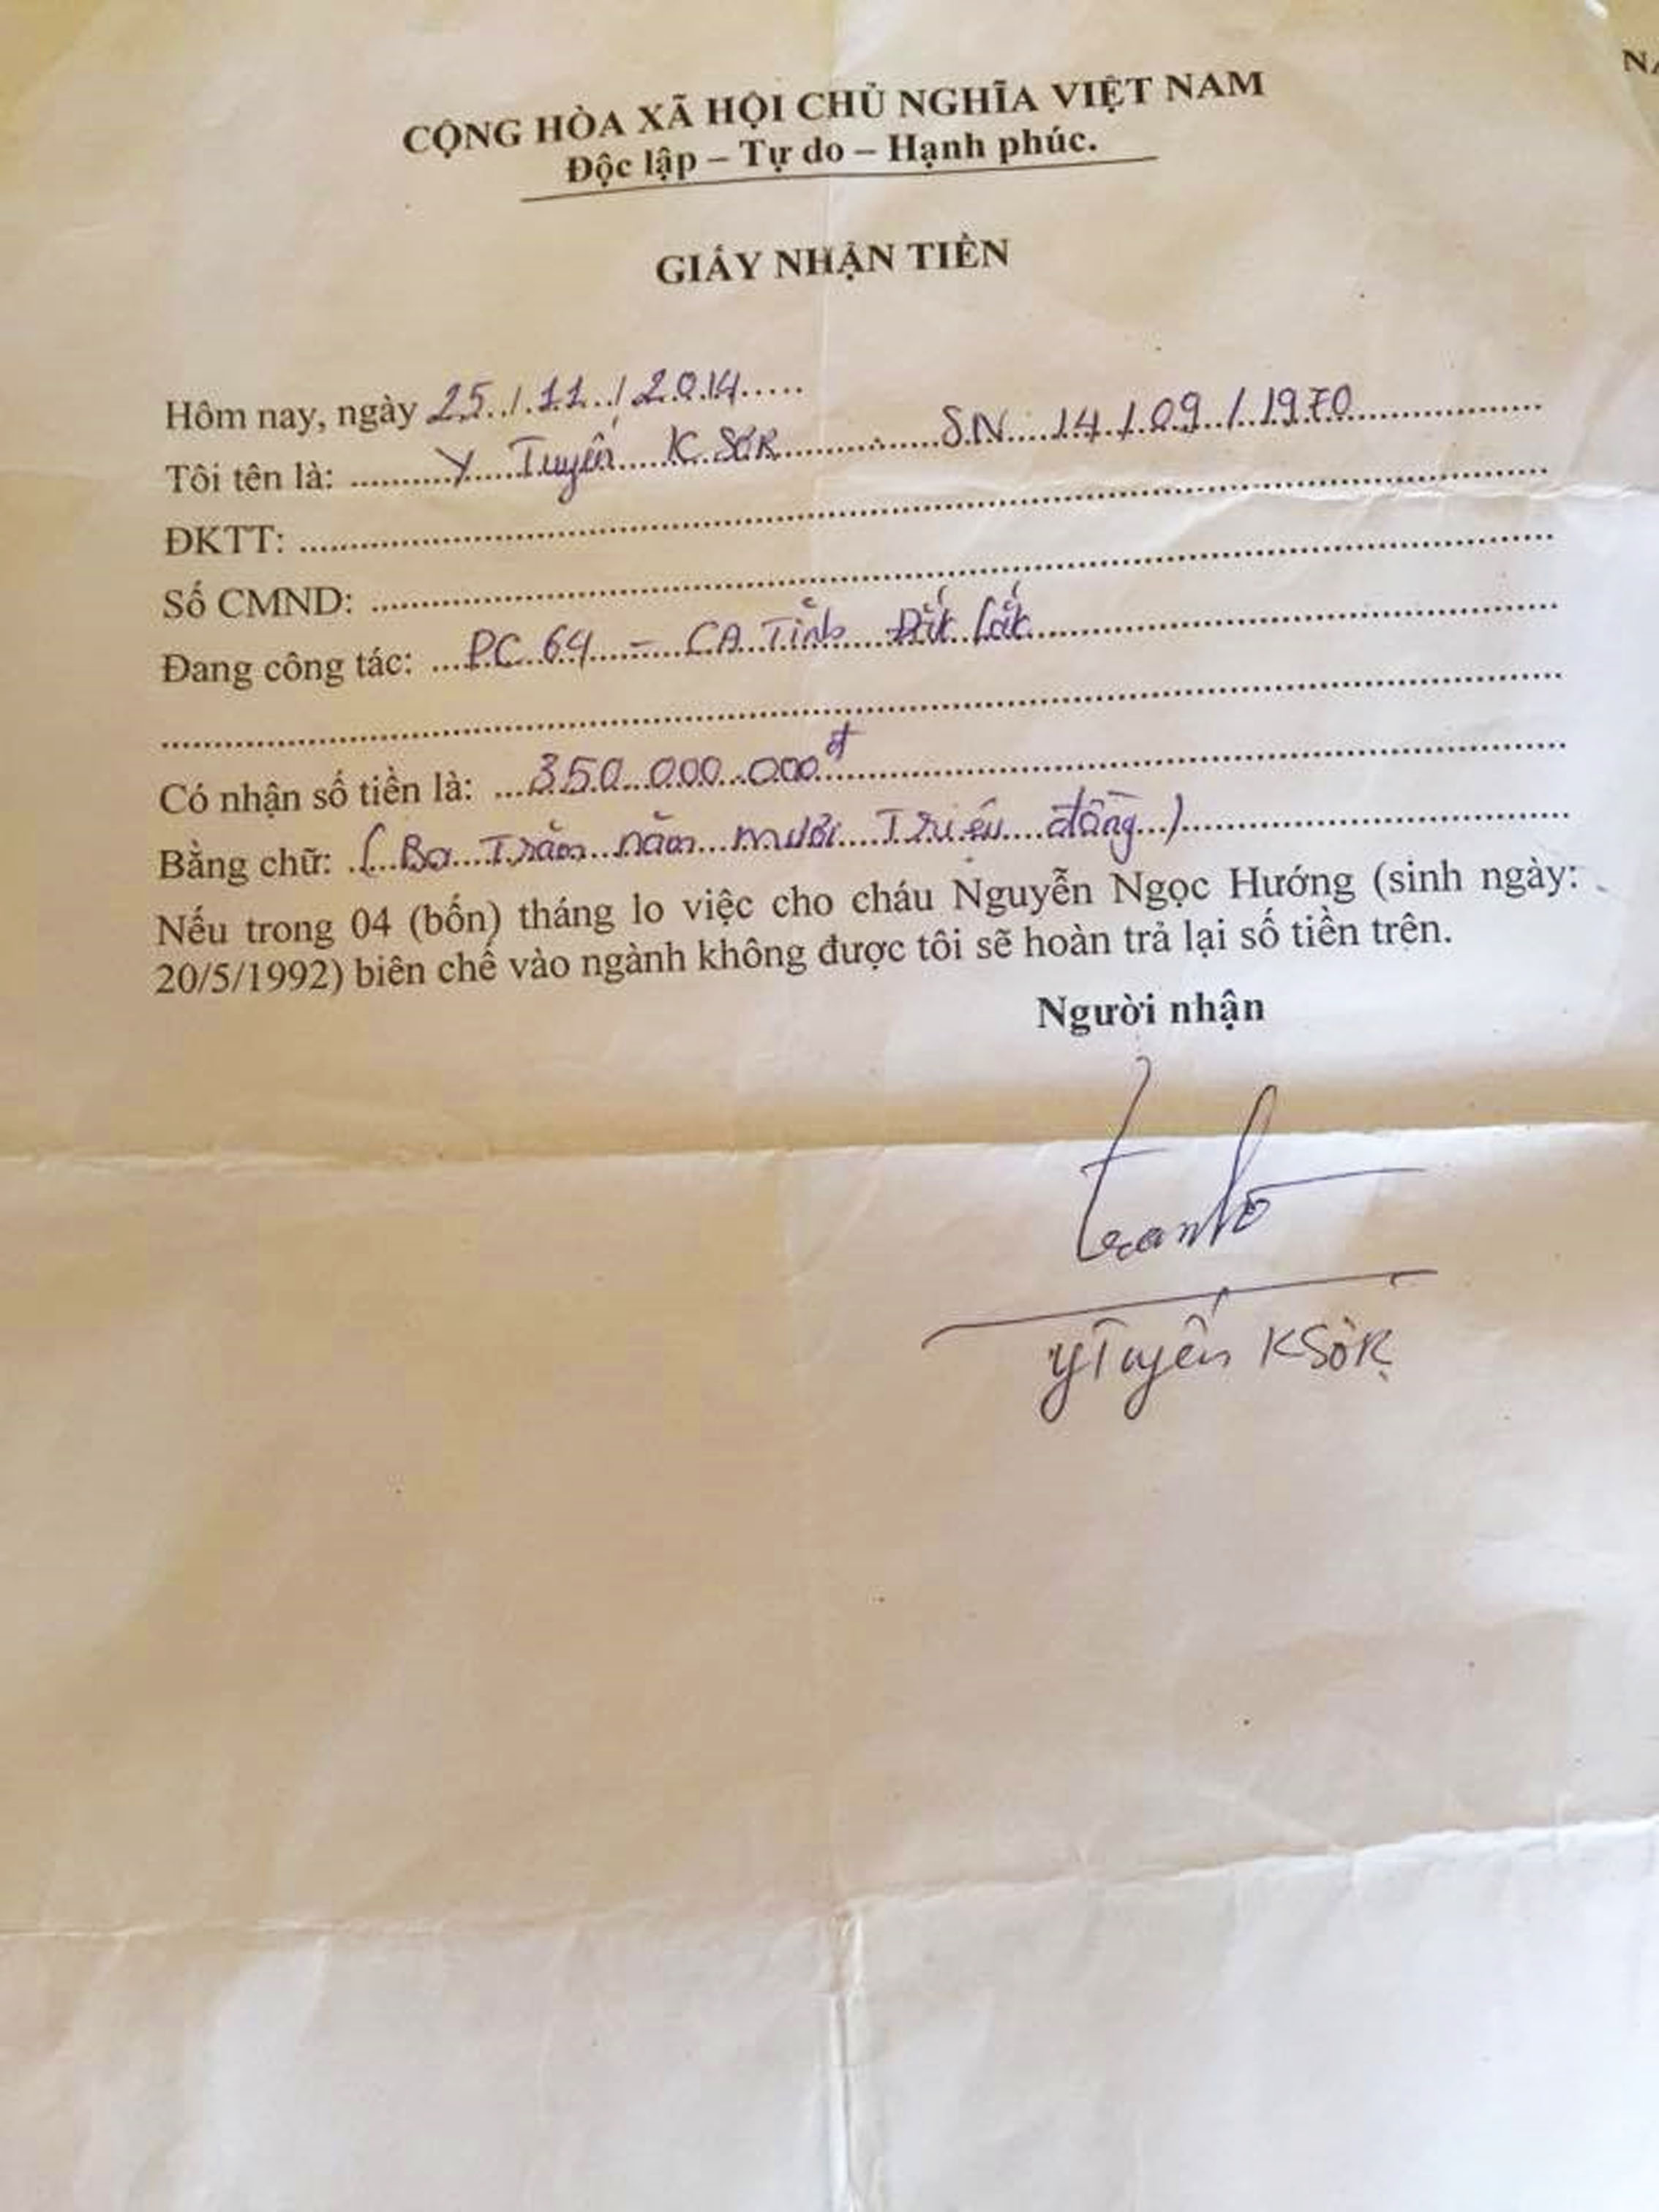 CỘNG HÒA XÃ HỘI CHỦ NGHĨA VIỆT NAM
Độc lập – Tự do – Hạnh phúc.
GIẤY NHẬN TIỀN
Hôm nay, ngày 25/11/2014
Tôi tên là: Y Tuyến KSơR SN 14/09/1970
ĐKTT:
Số CMND:
Đang công tác: PC 64 – CA Tỉnh Đắk Lắk
Có nhận số tiền là: 350.000.000đ
Bằng chữ: (Ba Trăm năm mươi Triệu đồng)
Nếu trong 04 (bốn) tháng lo việc cho cháu Nguyễn Ngọc Hướng (sinh ngày:
20/5/1992) biên chế vào ngành không được tôi sẽ hoàn trả lại số tiền trên.
Người nhận
YTuyến KSơR